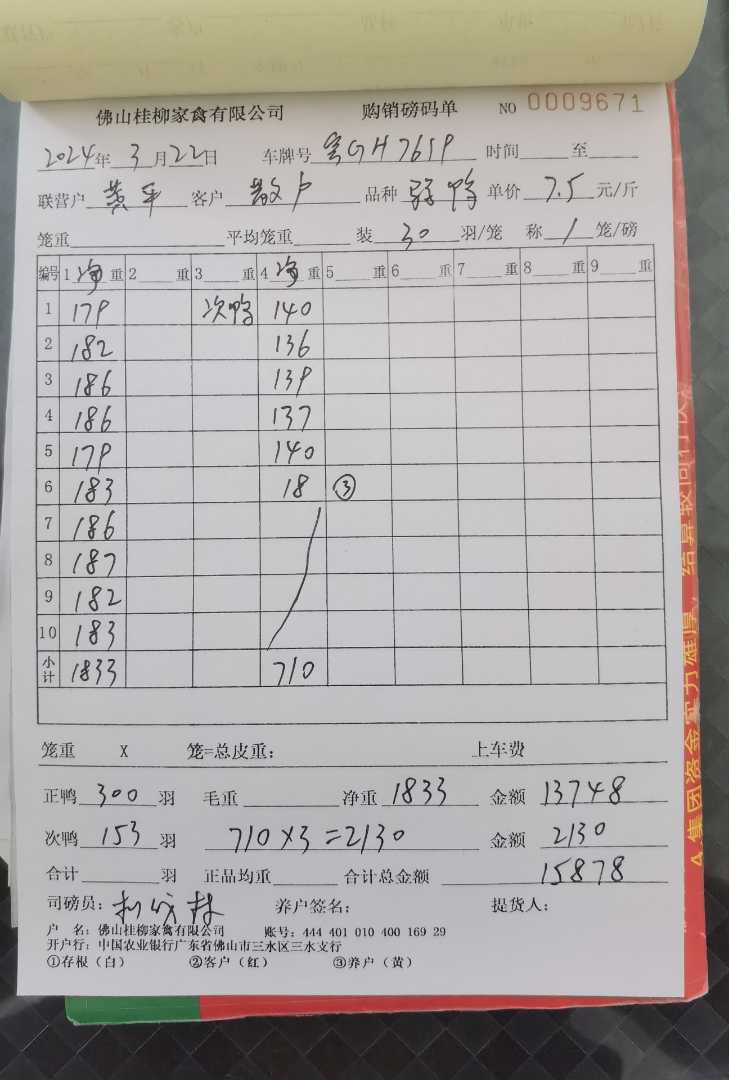 佛山桂柳家禽有限公司 购销磅码单 NO 0009671
2024年 3月22日 车牌号 GH7659 时间 至
联营户 黄平 客户 散户 品种 鸭 单价 7.5 元/斤
笼重 平均笼重 装 30 羽/笼 称 1 笼/磅
编号 1 净 重 2 重 3 重 4 净 重 5 重 6 重 7 重 8 重 9 重
1 179 次鸭 140
2 182 136
3 186 139
4 186 137
5 179 140
6 183 18 ③
7 186
8 187
9 182
10 183
小计 1833 710
笼重 X 笼=总皮重: 上车费
正鸭 300 羽 毛重 净重 1833 金额 13748
次鸭 153 羽 710×3=2130 金额 2130
合计 羽 正品均重 合计总金额 15878
司磅员: 养户签名: 提货人:
户 名: 佛山桂柳家禽有限公司 账号: 444 401 010 400 169 29
开户行: 中国农业银行广东省佛山市三水区三水支行
①存根（白） ②客户（红） ③养户（黄）
集团资金实力雄厚, 结算较同行快